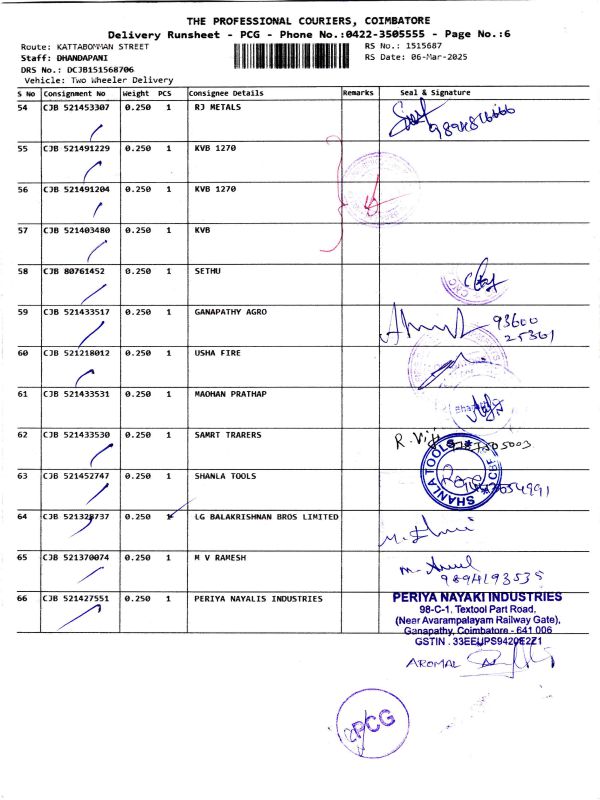 THE PROFESSIONAL COURIERS, COIMBATORE
Delivery Runsheet - PCG - Phone No.:0422-3505555 - Page No.:6
Route: KATTABOMMAN STREET RS No.: 1515687
Staff: DHANDAPANI RS Date: 06-Mar-2025
DRS No.: DCJB151568706
Vehicle: Two Wheeler Delivery
S No Consignment No Weight PCS Consignee Details Remarks Seal & Signature
54 CJB 521453307 0.250 1 RJ METALS
55 CJB 521491229 0.250 1 KVB 1270
56 CJB 521491204 0.250 1 KVB 1270
57 CJB 521403480 0.250 1 KVB
58 CJB 80761452 0.250 1 SETHU
59 CJB 521433517 0.250 1 GANAPATHY AGRO
93600
25361
60 CJB 521218012 0.250 1 USHA FIRE
61 CJB 521433531 0.250 1 MAOHAN PRATHAP
62 CJB 521433530 0.250 1 SAMRT TRARERS
R. Viji
63 CJB 521452747 0.250 1 SHANLA TOOLS
SHANLA TOOLS CBE
64 CJB 521328737 0.250 1 LG BALAKRISHNAN BROS LIMITED
65 CJB 521370074 0.250 1 M V RAMESH
9894193535
66 CJB 521427551 0.250 1 PERIYA NAYALIS INDUSTRIES
PERIYA NAYAKI INDUSTRIES
98-C-1, Textool Part Road,
(Near Avarampalayam Railway Gate),
Ganapathy, Coimbatore - 641 006
GSTIN . 33EEUPS9420E2Z1
AROMAL
PCG